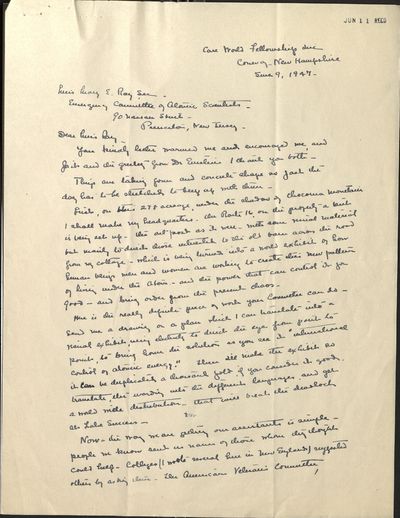 JUN 11 REC'D
Care World Fellowship Inc
Conway, New Hampshire
June 9, 1947 -
Miss Mary E. Ray, Sec -
Emergency Committee of Atomic Scientists
90 Nassau Street -
Princeton, New Jersey -
Dear Miss Ray -
Your kindly letter warmed me and encouraged me, and
and the greeting from Dr Einstein I thank you both -
Things are taking form and concrete shape so fast the
day has to be stretched to keep up with them -
First, on this 275 acreage, under the shadow of Chocorua Mountain
I shall make my headquarters. On Route 16, on the property a tent
is being set up - the out post as it were - with some visual material
but mainly to direct those interested to the old barn across the road
from my cottage - which is being turned into a world exhibit of how
human beings men and women are working to create this new pattern
of living under the Atom - and the power that can control it for
good - and bring order from the present chaos -
Here is the really definite piece of work your Committee can do -
send me a drawing or a plan which I can translate into a
visual exhibit, using to direct the eye from point to
point, to bring home the solution as you see it "international
control of atomic energy." Then I'll make the exhibit so
it can be duplicated a thousand fold if you consider it good,
translate the wording into the different languages and get
a world wide distribution - that will break the deadlock
at Lake Success -
Now - the way we are getting our assistants is simple -
people we know send us names of those whom they thought
could help - Colleges (I wrote several here in New England) suggested
others by asking them - The American Veterans Committee,